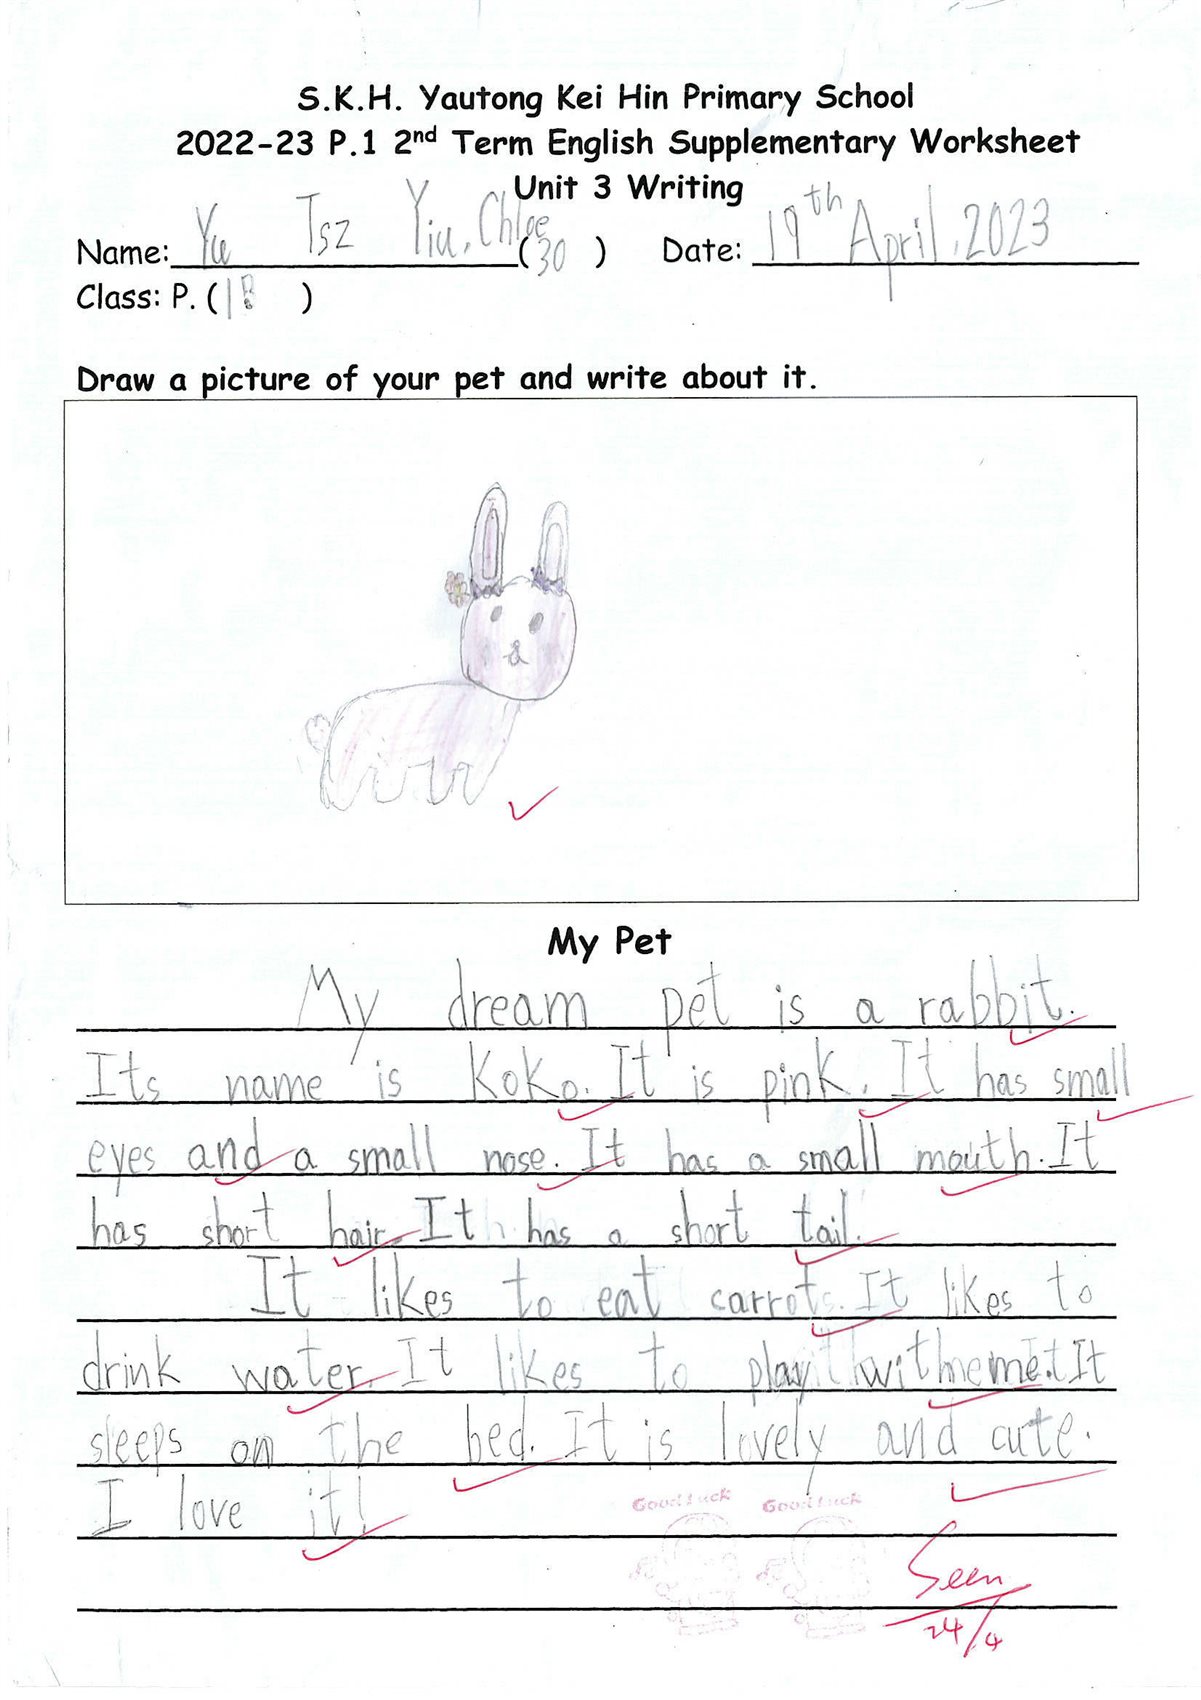 S.K.H. Yautong Kei Hin Primary School
2022-23 P.1 2nd Term English Supplementary Worksheet
Unit 3 Writing
Name: Yu Tsz Yiu, Chloe (30) Date: 19th April, 2023
Class: P. (1B)
Draw a picture of your pet and write about it.
My Pet
My dream pet is a rabbit.
Its name is Koko. It is pink. It has small
eyes and a small nose. It has a small mouth. It
has short hair. It has a short tail.
It likes to eat carrots. It likes to
drink water. It likes to play with me. It
sleeps on the bed. It is lovely and cute.
I love it!
Good Luck Good Luck
Seen
24/4